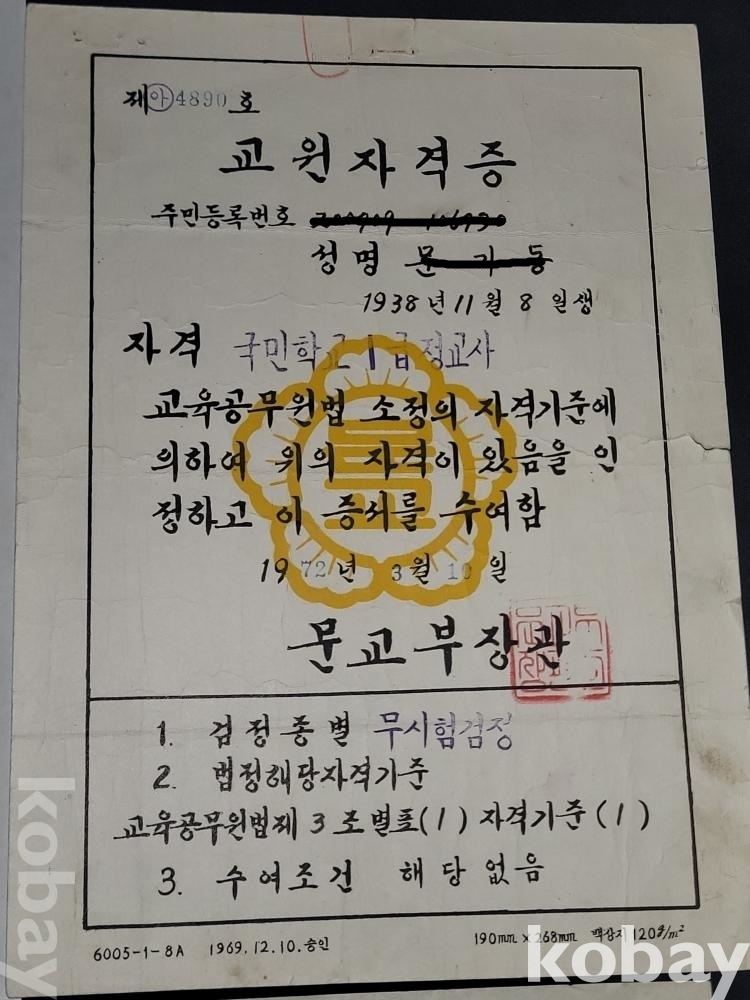 제 아 4890 호
교원자격증
주민등록번호
성명
1938년 11월 8일생
자격 국민학교 1급정교사
교육공무원법 소정의 자격기준에
의하여 위의 자격이 있음을 인
정하고 이 증서를 수여함
1972년 3월 10일
문교부장관
1. 검정종별 무시험검정
2. 법정해당자격기준
교육공무원법제 3조별표(1) 자격기준(1)
3. 수여조건 해당없음
6005-1-8A 1969.12.10.승인 190mm×268mm 백상지 120g/m²
kobay
kobay
kobay